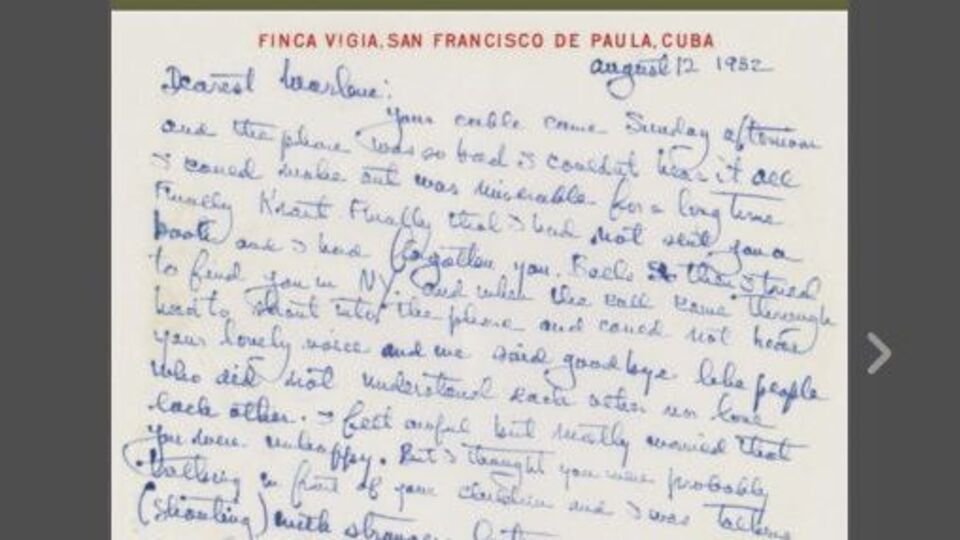 FINCA VIGIA, SAN FRANCISCO DE PAULA, CUBA
August 12 1952
Dearest Marlene:
Your cable came Sunday afternoon
and the phone was so bad I couldnt hear it all
I could make out was miserable for a long time
Finally Kraut Finally that I had not sent you a
book and I had forgotten you. then I tried
to find you in NY. and when the call came through
had to shout into the phone and could not hear
your lovely voice and we said goodbye like people
who did not understand each other nor love
each other. I felt awful but really worried that
you were unhappy. But I thought you were probably
talking in front of your children and I was talking
(shouting) with